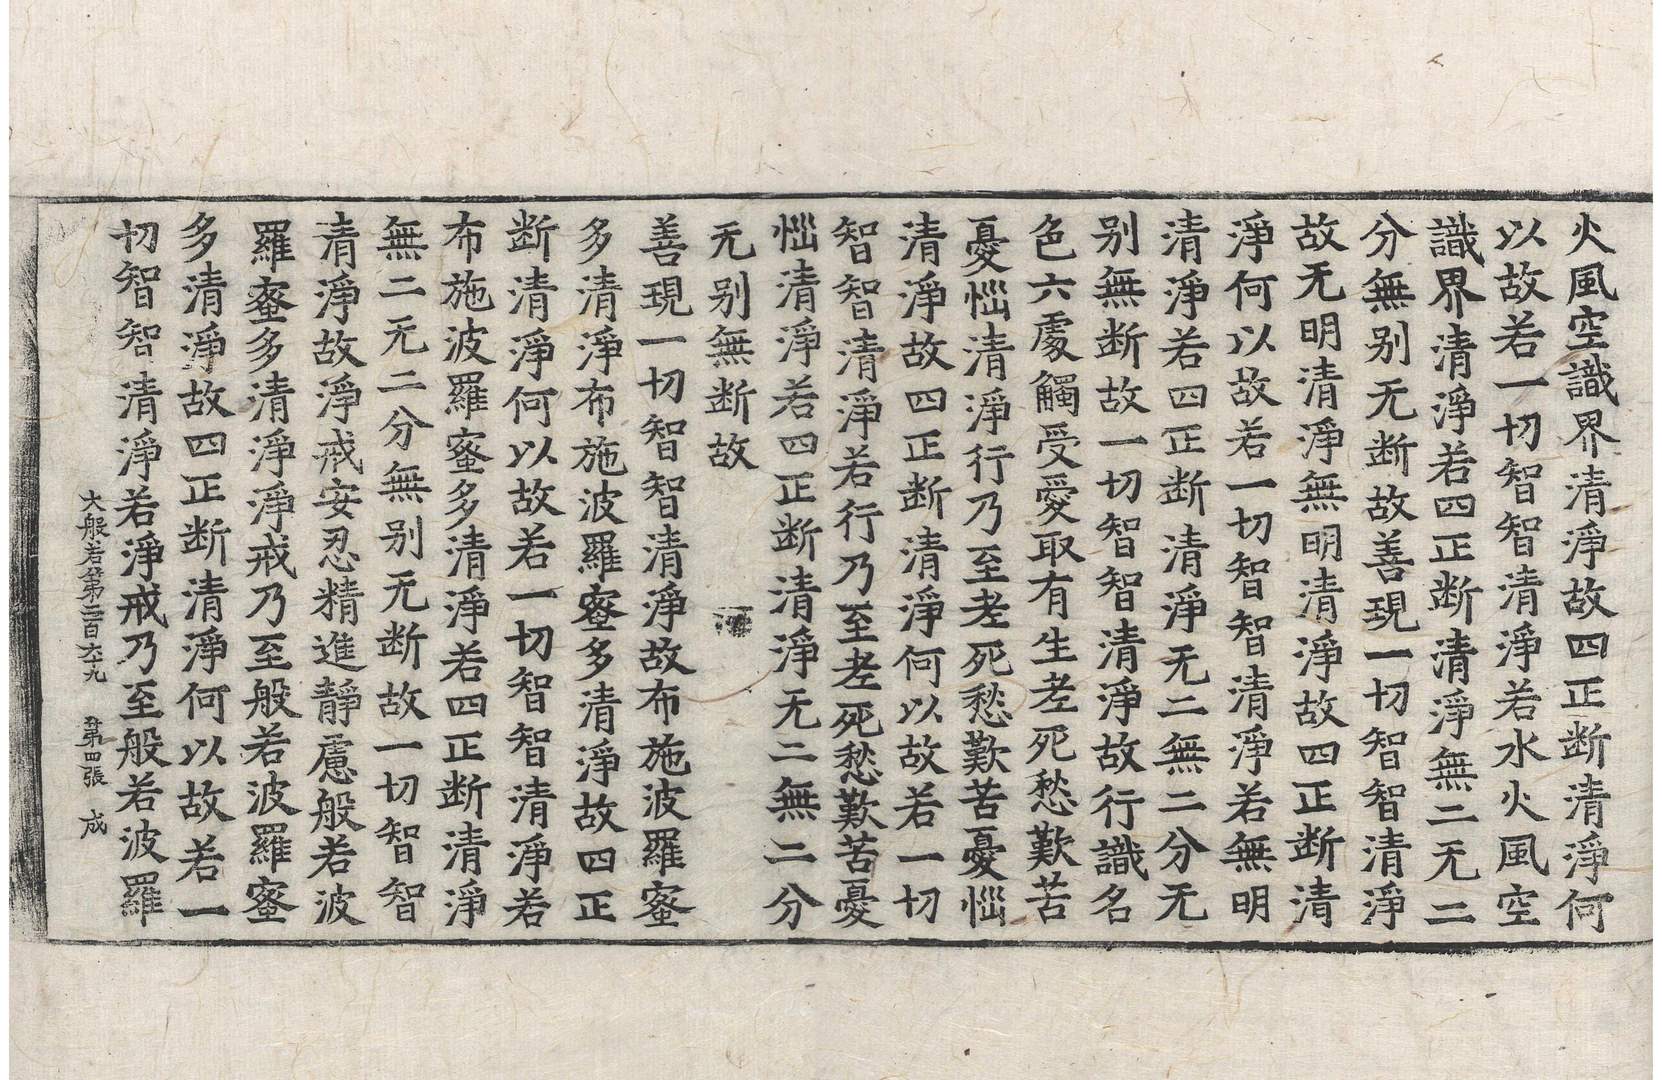 火風空識界清淨故四正断清淨何
以故若一切智智清淨若水火風空
識界清淨若四正断清淨無二无二
分無别无断故善現一切智智清淨
故无明清淨無明清淨故四正断清
淨何以故若一切智智清淨若無明
清淨若四正断清淨无二無二分无
别無断故一切智智清淨故行識名
色六處觸受愛取有生老死愁歎苦
憂惱清淨行乃至老死愁歎苦憂惱
清淨故四正断清淨何以故若一切
智智清淨若行乃至老死愁歎苦憂
惱清淨若四正断清淨无二無二分
无别無断故
善現一切智智清淨故布施波羅蜜
多清淨布施波羅蜜多清淨故四正
断清淨何以故若一切智智清淨若
布施波羅蜜多清淨若四正断清淨
無二无二分無别无断故一切智智
清淨故淨戒安忍精進靜慮般若波
羅蜜多清淨淨戒乃至般若波羅蜜
多清淨故四正断清淨何以故若一
切智智清淨若淨戒乃至般若波羅
大般若第二百六十九 第四張 成